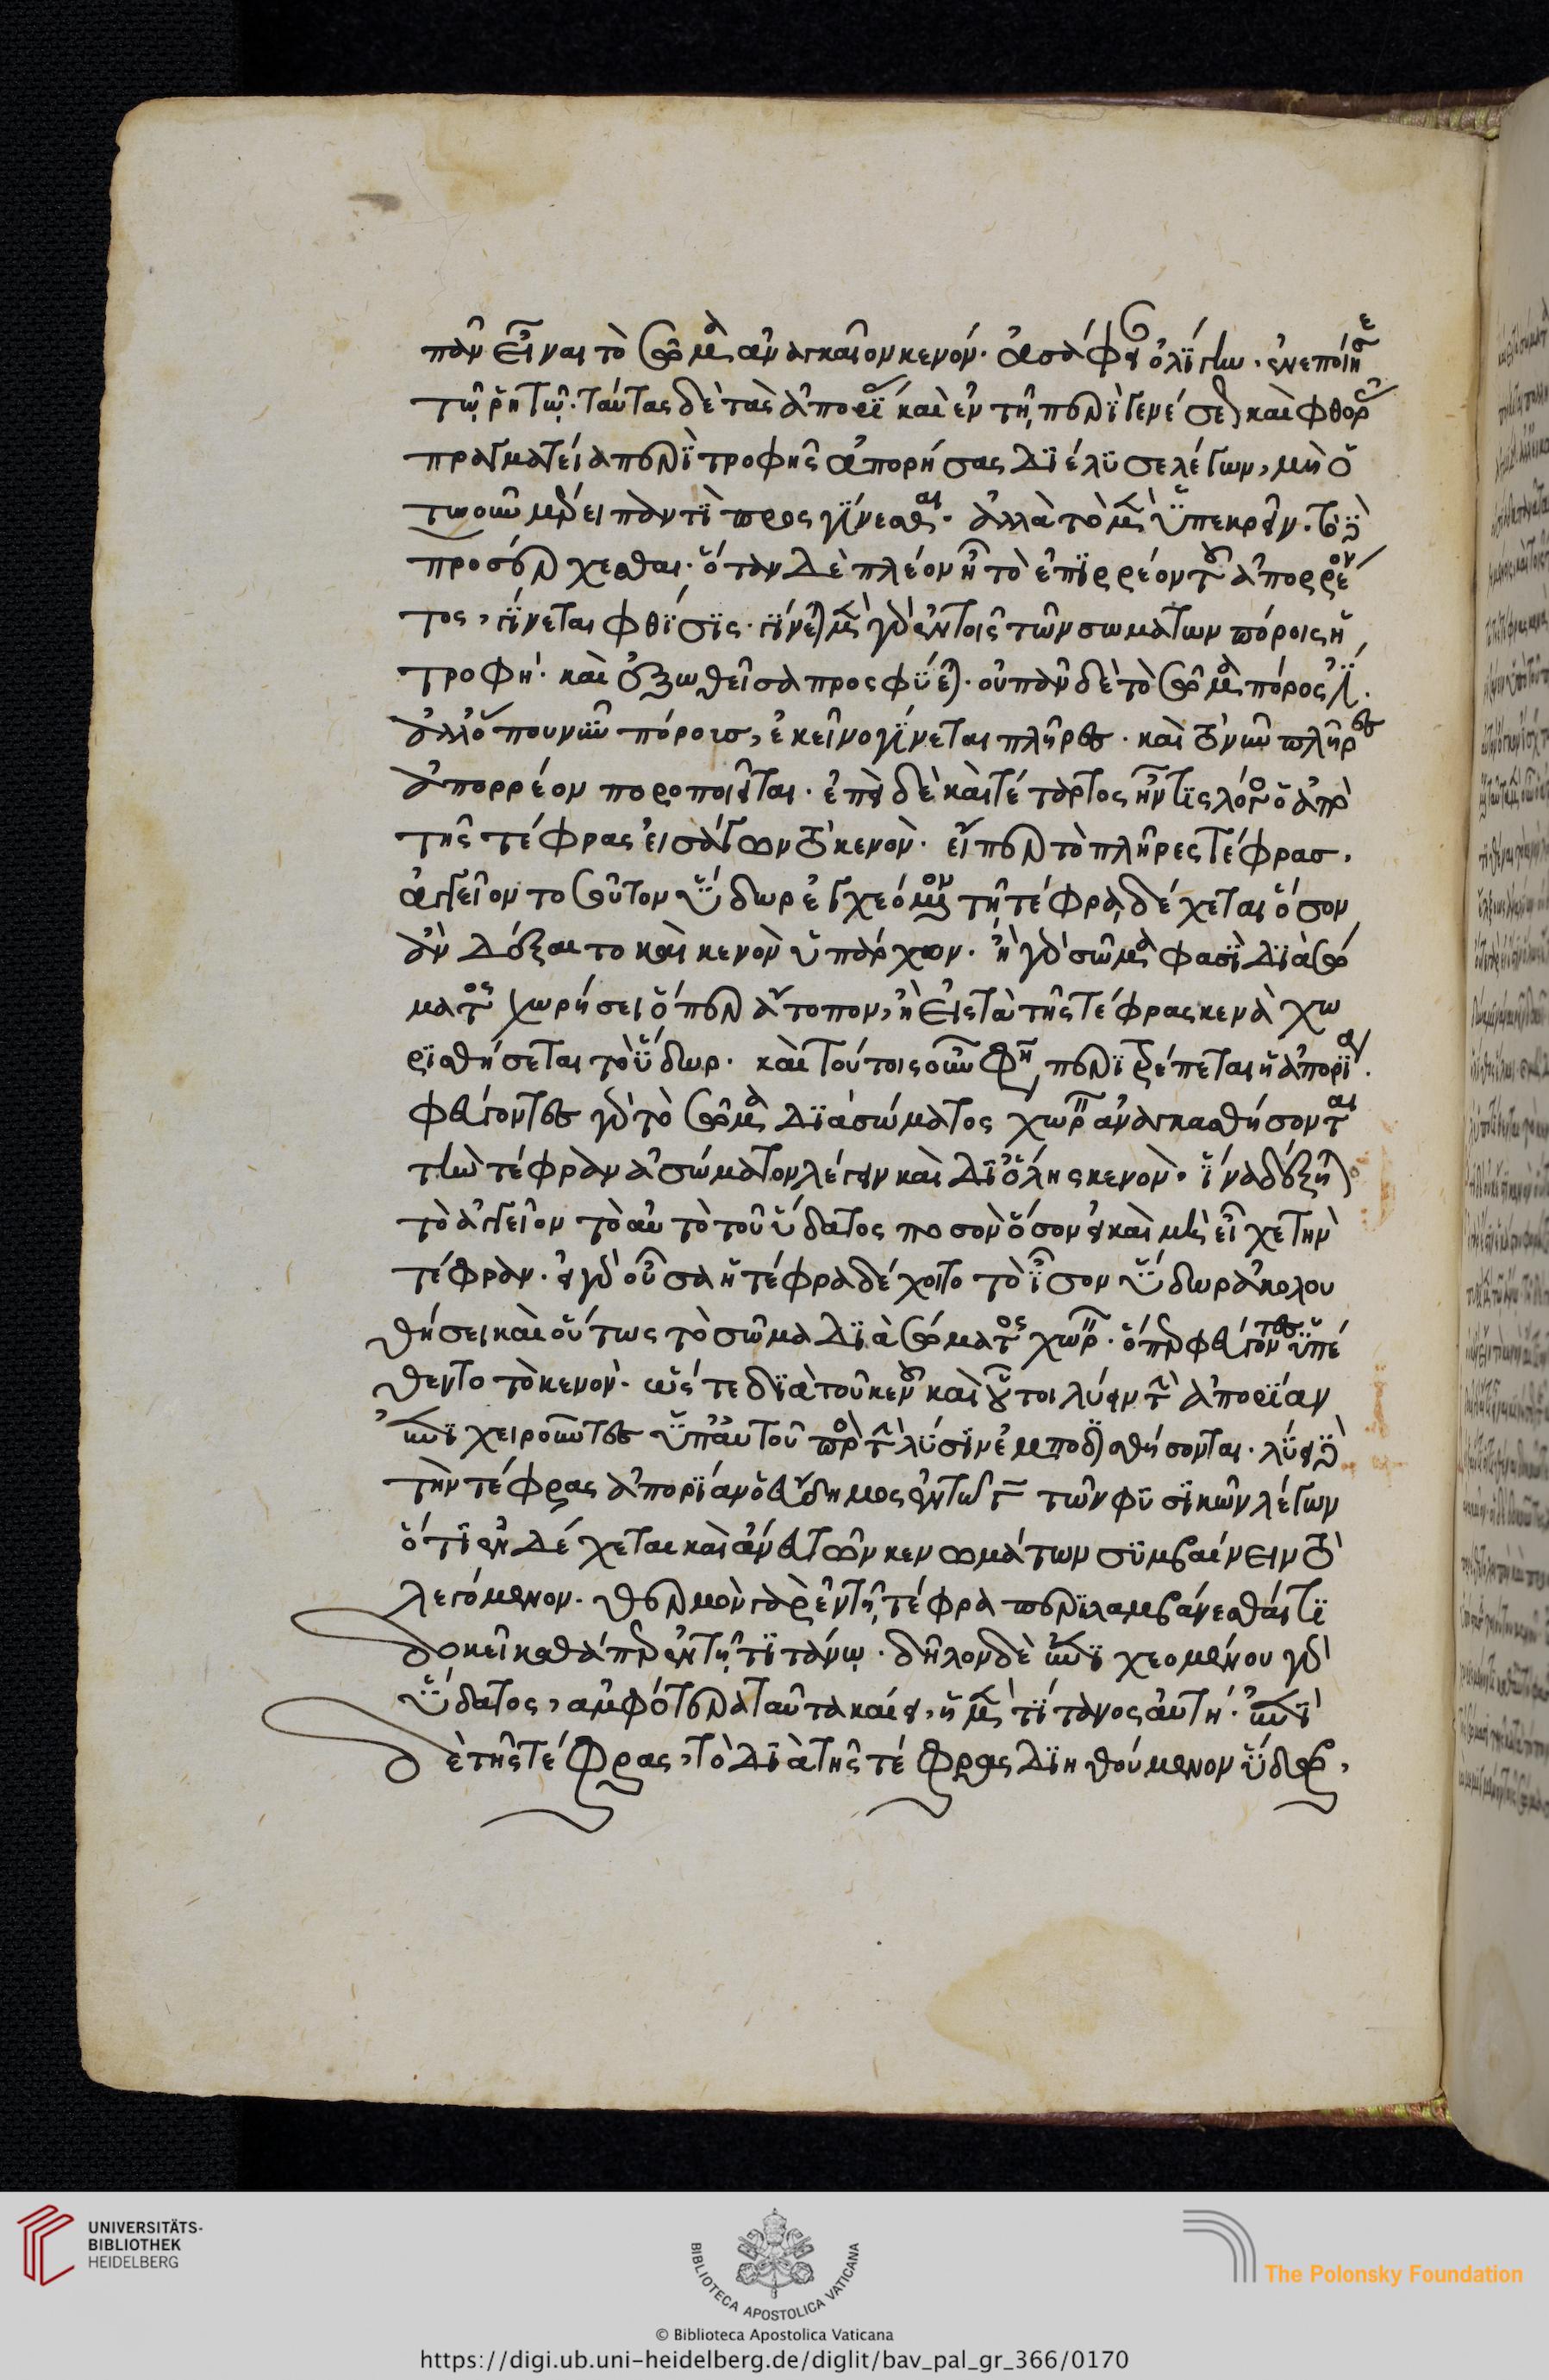 πᾶν εἶναι τὸ σῶμα ἀναγκαῖον κενόν. ἀσάφειαν ὀλίγην ἐνεποίησε
τῷ ῥητῷ. ταύτας δὲ τὰς ἀπορίας καὶ ἐν τῇ περὶ γενέσεως καὶ φθορᾶς
πραγματείᾳ περὶ τροφῆς ἀπορήσας διέλυσε λέγων, μὴ οὕ
τως οἰκονομεῖ παντὶ προσγίνεσθαι. ἀλλὰ τὸ μὲν ὑπεκρεῖν. τὸ δὲ
προσέρχεσθαι. ὅταν δὲ πλέον ᾖ τὸ ἐπιρρέον τοῦ ἀπορρέον
τος, γίνεται φθίσις. γίνεται μὲν γὰρ ἐν τοῖς τῶν σωμάτων πόροις ἡ
τροφή. καὶ ἐξωθεῖσα προσφύεται. οὐ πᾶν δὲ τὸ σῶμα πόρος ἐστί.
ἀλλ' ὅπου νῦν πόροις, ἐκεῖνο γίνεται πλῆρες. καὶ τὸ νῦν πλῆρες
ἀπορρέον ποροποιεῖται. ἐπεὶ δὲ καὶ τέταρτος ἦν τις λόγος ὁ ἀπὸ
τῆς τέφρας εἰσάγων τὸ κενόν. εἴπερ τὸ πλῆρες τέφρας
ἀγγεῖον τοσοῦτον ὕδωρ ἐγχεόμενον τῇ τέφρᾳ δέχεται ὅσον
ἂν δέξαιτο καὶ κενὸν ὑπάρχον. ἢ γὰρ σῶμα φασὶ διὰ σώ
ματος χωρήσει ὅπερ ἄτοπον, ἢ εἰς τὰ τῆς τέφρας κενὰ χω
ρισθήσεται τὸ ὕδωρ. καὶ τούτοις οὖν φησι, περιτρέπεται ἡ ἀπορία.
φεύγοντες γὰρ τὸ σῶμα διὰ σώματος χωρεῖν ἀναγκασθήσονται
τὴν τέφραν ἀσώματον λέγειν καὶ δι' ὅλης κενόν. ἵνα δέξηται
τὸ ἀγγεῖον τὸ αὐτὸ τοῦ ὕδατος ποσὸν ὅσον εἰ καὶ μὴ εἶχε τὴν
τέφραν. εἰ γὰρ οὖσα ἡ τέφρα δέχοιτο τὸ ἴσον ὕδωρ ἀκολου
θήσει καὶ οὕτως τὸ σῶμα διὰ σώματος χωρεῖν. ὅπερ φεύγοντες ὑπέ
θεντο τὸ κενόν. ὥστε διὰ τοῦ κενοῦ καὶ οὗτοι λύειν τὴν ἀπορίαν
ἐπιχειροῦντες ὑπ' αὐτοῦ πρὸς τὴν λύσιν ἐμποδισθήσονται. λύει δὲ
τὴν τέφρας ἀπορίαν ὁ εὔδημος ἐν τῷ γ̄ τῶν φυσικῶν λέγων
ὅτι ἐνδέχεται καὶ ἄνευ τῶν κενωμάτων συμβαίνειν τὸ
λεγόμενον. θερμὸν γὰρ ἐν τῇ τέφρᾳ περιλαμβάνεσθαί τι
δοκεῖ καθάπερ ἐν τῇ τιτάνῳ. δῆλον δὲ ἐπιχεομένου γὰρ
ὕδατος, ἀμφότερα ταῦτα καίει, ἡ μὲν τίτανος αὐτή. ἐπὶ
δὲ τῆς τέφρας, τὸ διὰ τῆς τέφρας διηθούμενον ὕδωρ,
UNIVERSITÄTS-
BIBLIOTHEK
HEIDELBERG
BIBLIOTECA APOSTOLICA VATICANA
The Polonsky Foundation
© Biblioteca Apostolica Vaticana
https://digi.ub.uni-heidelberg.de/diglit/bav_pal_gr_366/0170